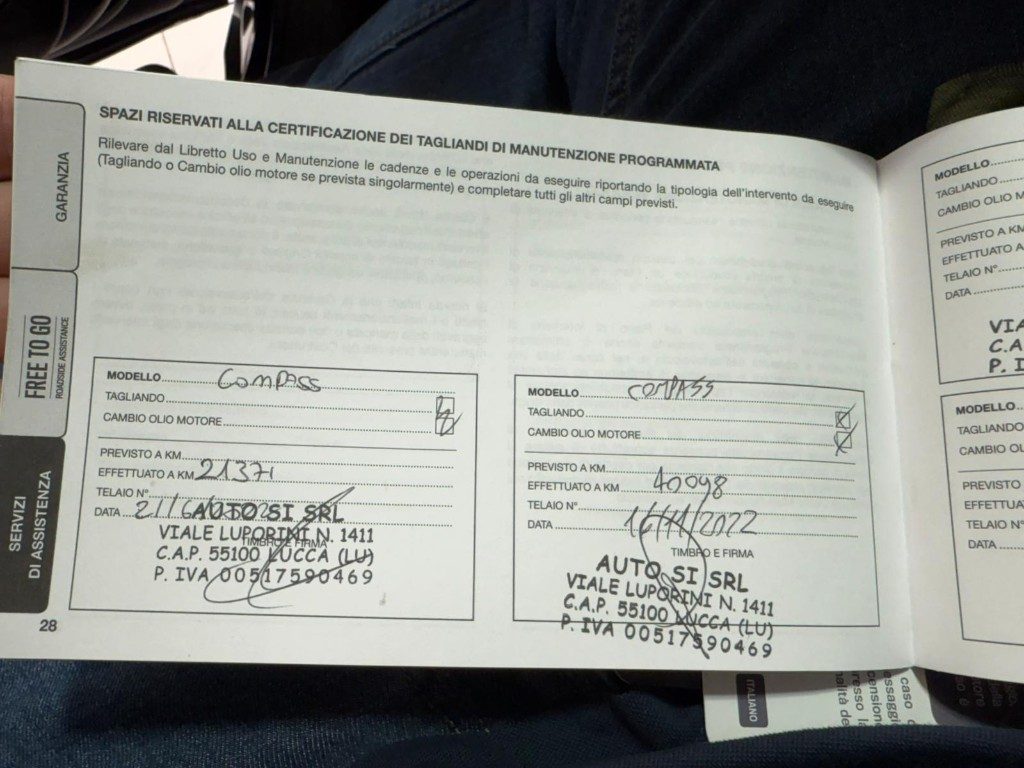 SPAZI RISERVATI ALLA CERTIFICAZIONE DEI TAGLIANDI DI MANUTENZIONE PROGRAMMATA
Rilevare dal Libretto Uso e Manutenzione le cadenze e le operazioni da eseguire riportando la tipologia dell'intervento da eseguire
(Tagliando o Cambio olio motore se prevista singolarmente) e completare tutti gli altri campi previsti.
GARANZIA
FREE TO GO
ROADSIDE ASSISTANCE
SERVIZI
DI ASSISTENZA
MODELLO COMPASS
TAGLIANDO
CAMBIO OLIO MOTORE
PREVISTO A KM
EFFETTUATO A KM 21371
TELAIO N°
DATA 21/6/
TIMBRO E FIRMA
AUTO SI SRL
VIALE LUPORINI N. 1411
C.A.P. 55100 LUCCA (LU)
P. IVA 00517590469
28
MODELLO COMPASS
TAGLIANDO
CAMBIO OLIO MOTORE
PREVISTO A KM
EFFETTUATO A KM 40098
TELAIO N°
DATA 16/11/2022
TIMBRO E FIRMA
AUTO SI SRL
VIALE LUPORINI N. 1411
C.A.P. 55100 LUCCA (LU)
P. IVA 00517590469
MODELLO
TAGLIANDO
CAMBIO OLIO M
PREVISTO A KM
EFFETTUATO A
TELAIO N°
DATA
VIA
C.A.
P. I
MODELLO
TAGLIANDO
CAMBIO OL
PREVISTO
EFFETTUA
TELAIO N°
DATA
ITALIANO